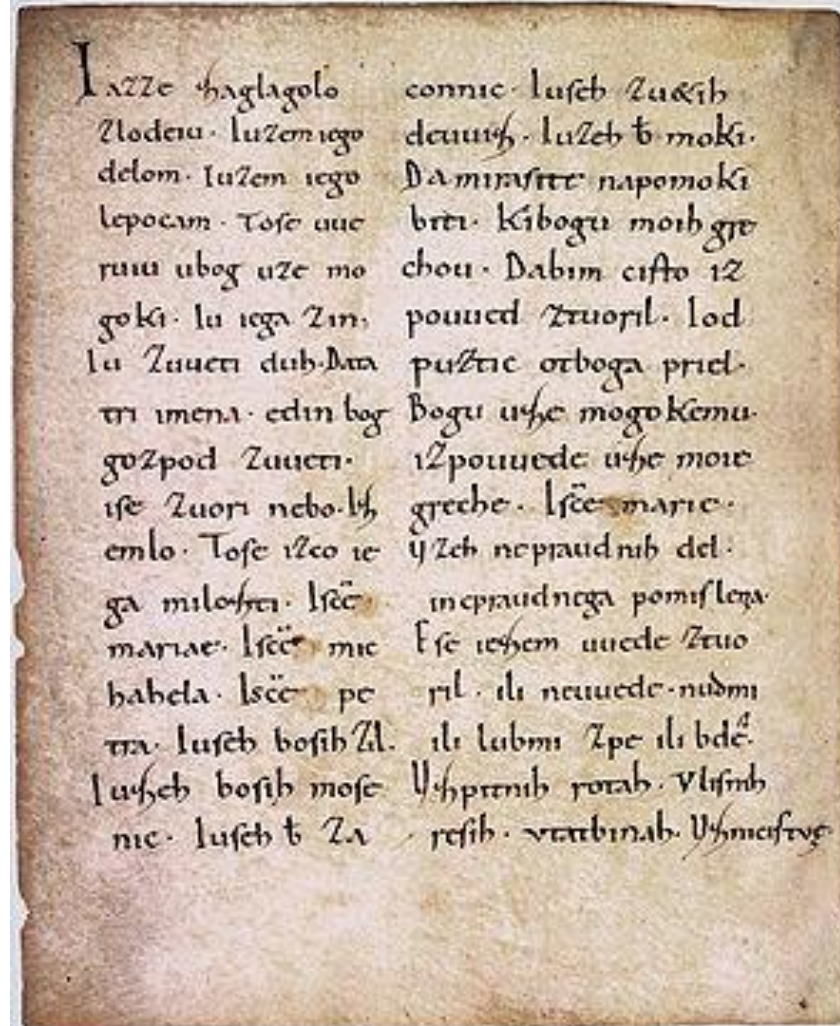 Iazze zaglagolo
zlodeiu. Iuzem iego
delom. Iuzem iego
lepocam. Tose uue
ruiu ubog uze mo
goki. Iu iega zin,
Iu zuueti duh. Data
tri imena. edin bog
gozpod zuueti.
ise zuori nebo. Iz
emlo. Tose izco ie
ga milozti. Iscẽ
mariae. Iscẽ mic
hahela. Iscẽ pe
tra. Iuseh bosih zil.
Iuzeh bosih mose
nic. Iuseh ƀ za
connic. Iuseh zu&ih
deuuiz. Iuzeh ƀ moki.
Da mi rasite na pomoki
biti. Kibogu moih gre
chou. Dabim cisto iz
pouued ztuoril. Iod
puztic otboga priel.
Bogu uze mogokemu.
izpouuede uze moie
greche. Iscẽ marie.
uzeh nepraudnih del.
inepraudnega pomislena.
Ese iezem uuede ztuo
ril. ili neuuede. nudmi
ili lubmi zpe ili bdẽ.
Uzpitnih rotah. Vlisnih
resih. vtatbinah. Uznicistve.